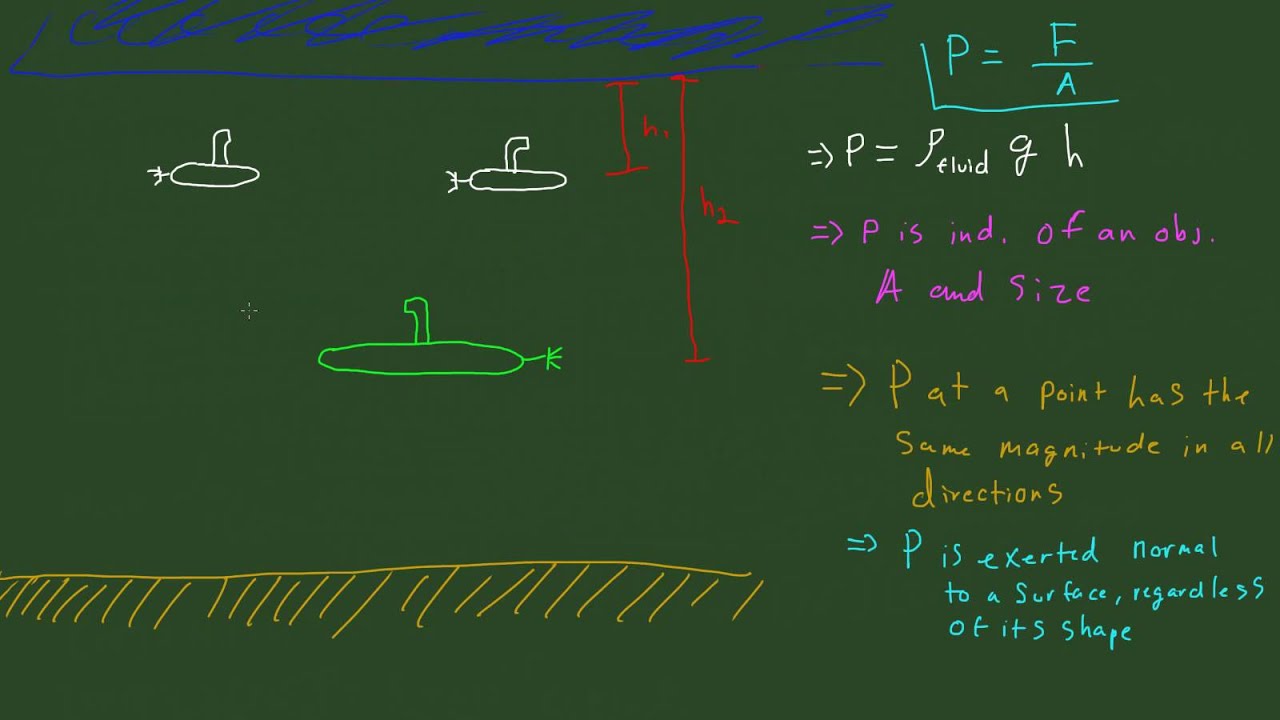 P = F/A
h₁
=> P = ρfluid g h
h₂
=> P is ind. of an obs.
A and size
=> P at a point has the
same magnitude in all
directions
=> P is exerted normal
to a surface, regardless
of its shape